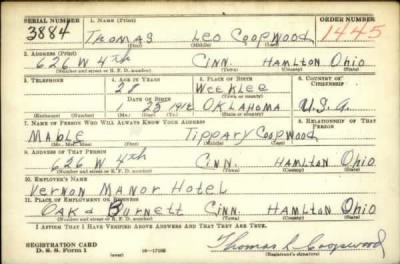 SERIAL NUMBER 1. NAME (Print) ORDER NUMBER
3884 THOMAS LEO COOPWOOD 1445
(First) (Middle) (Last)
2. ADDRESS (Print)
626 W 4th CINN. HAMLTON OHIO
(Number and street or R. F. D. number) (Town) (County) (State)
3. TELEPHONE 4. AGE IN YEARS 5. PLACE OF BIRTH 6. COUNTRY OF CITIZENSHIP
28 WeeKLee
DATE OF BIRTH
1 23 1912 OKLAHOMA U.S.A.
(Exchange) (Number) (Mo.) (Day) (Yr.) (State or country)
7. NAME OF PERSON WHO WILL ALWAYS KNOW YOUR ADDRESS 8. RELATIONSHIP OF THAT PERSON
MABLE TIPPARY COOPWOOD
(Mr., Mrs., Miss) (First) (Middle) (Last)
9. ADDRESS OF THAT PERSON
626 W 4th CINN. HAMLTON OHIO
(Number and street or R. F. D. number) (Town) (County) (State)
10. EMPLOYER'S NAME
Vernon MANOR HOTEL
11. PLACE OF EMPLOYMENT OR BUSINESS
OAK & BURNETT CINN. HAMLTON OHIO
(Number and street or R. F. D. number) (Town) (County) (State)
I AFFIRM THAT I HAVE VERIFIED ABOVE ANSWERS AND THAT THEY ARE TRUE.
REGISTRATION CARD
D. S. S. Form 1 (over) Thomas L Coopwood
(Registrant's signature)